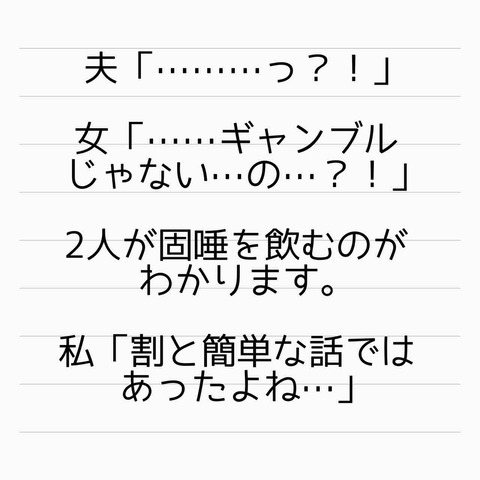 夫「………っ？！」
女「……ギャンブル
じゃない…の…？！」
2人が固唾を飲むのが
わかります。
私「割と簡単な話では
あったよね…」